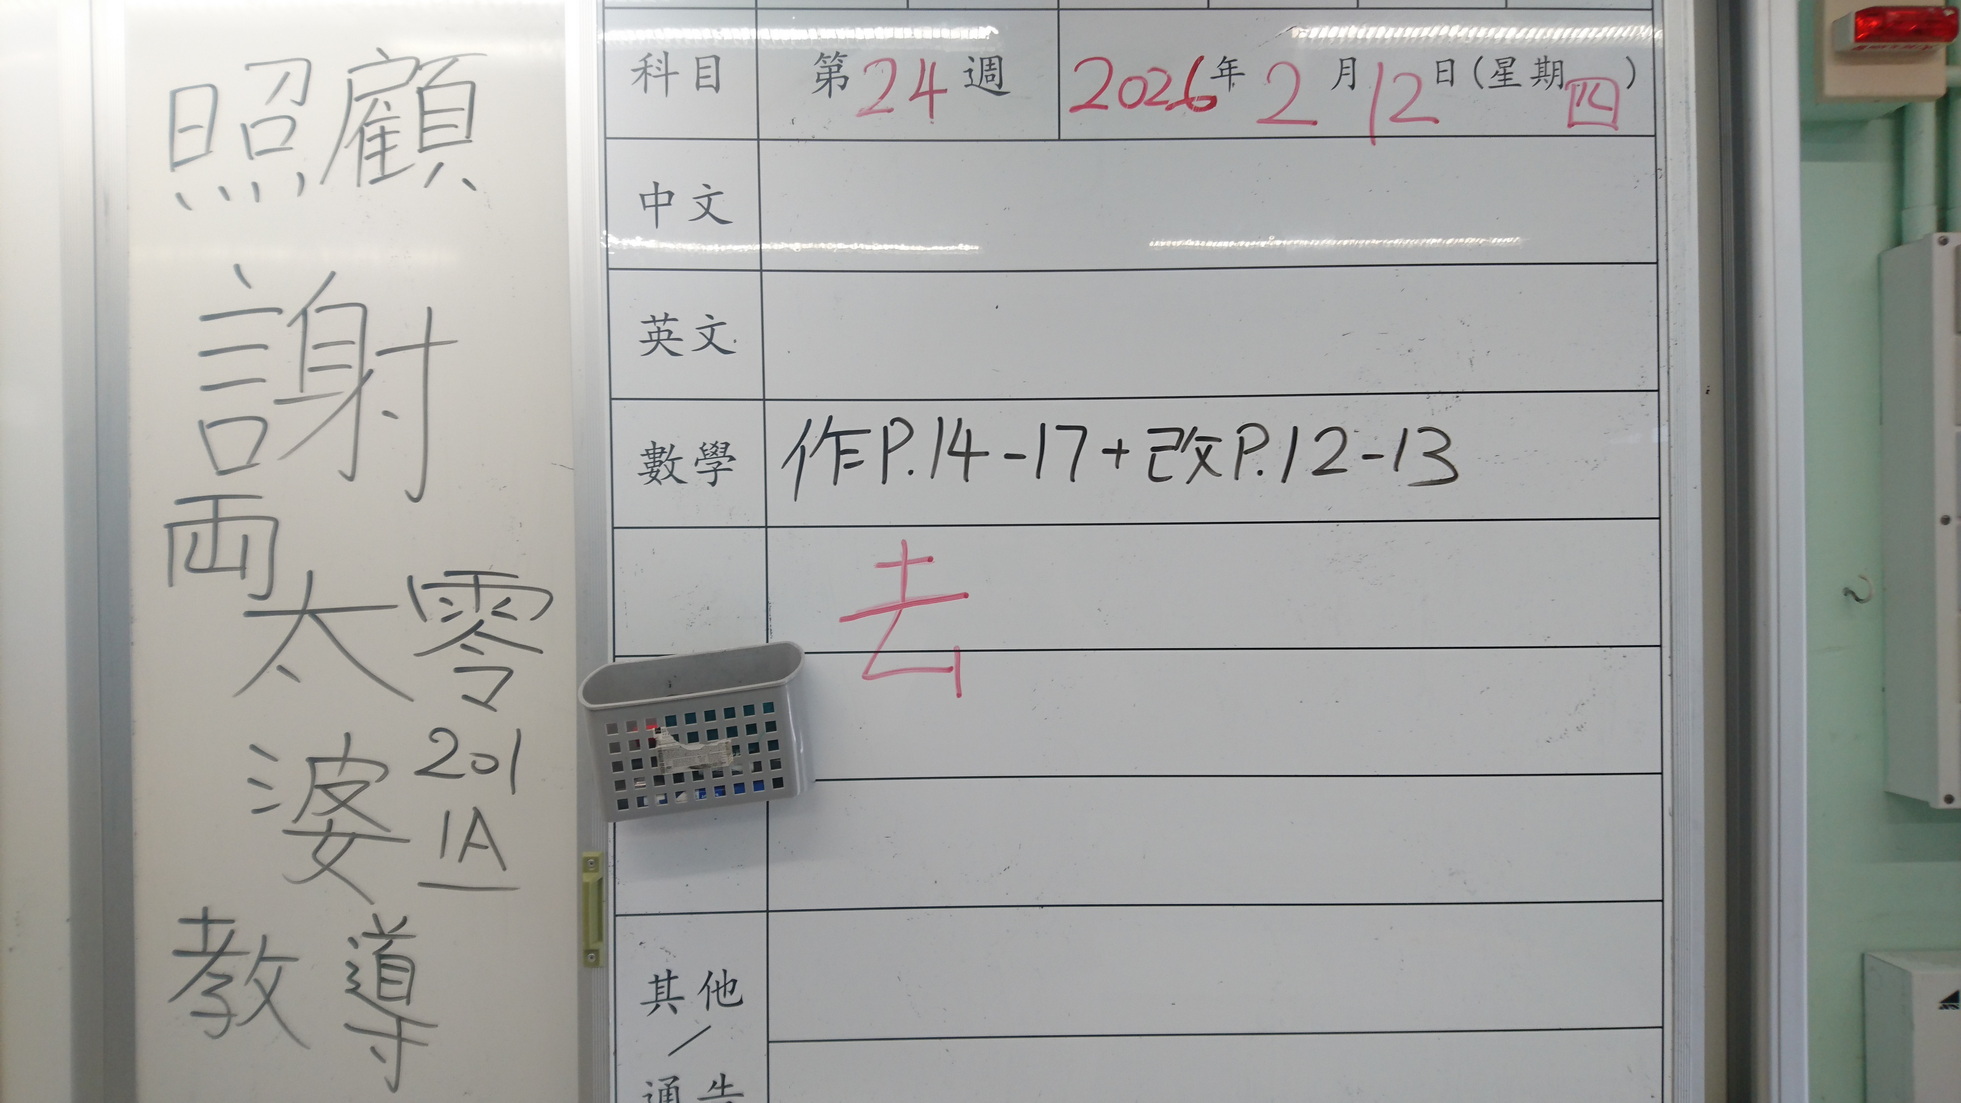 照顧
謝
両
太 零
婆 201
1A
教導
科目 第24週 2026年2月12日(星期四)
中文
英文
數學 作P.14-17+改P.12-13
去
其他
/
通告